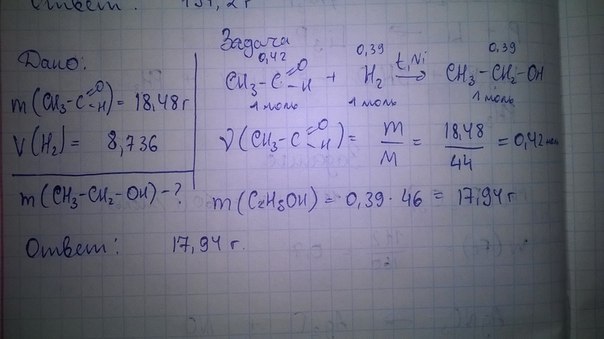 Ответ: 151,2 г
Дано:
m(CH₃-C(=O)H) = 18,48 г
V(H₂) = 8,736
m(CH₃-CH₂-OH) - ?
Задача
0,42 0,39 0,39
CH₃-C(=O)H + H₂ t, Ni → CH₃-CH₂-OH
1 моль 1 моль 1 моль
ν(CH₃-C(=O)H) = m/M = 18,48/44 = 0,42 мол
m(C₂H₅OH) = 0,39 · 46 = 17,94 г
Ответ: 17,94 г.